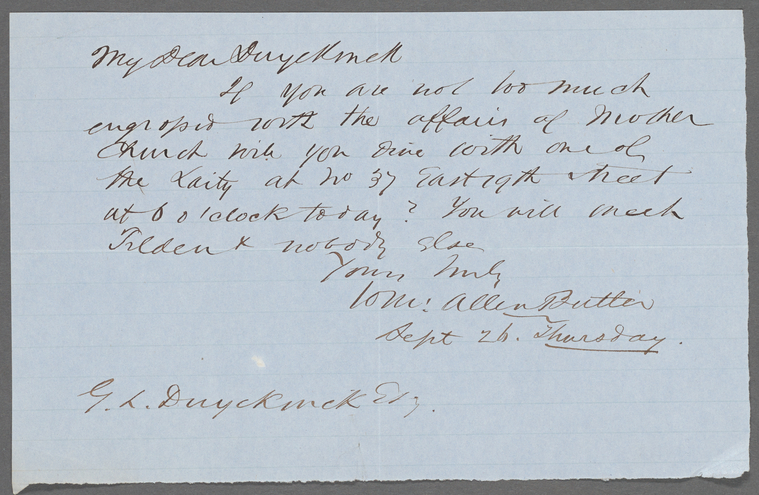 My Dear Duyckinck
If you are not too much
engrossed with the affairs of Mother
Church will you dine with one of
the Laity at No 37 East 19th street
at 6 o'clock today? You will meet
Tilden & nobody else
Yours truly
Wm: Allen Butler
Sept 26. Thursday.
G. L. Duyckinck Esq.